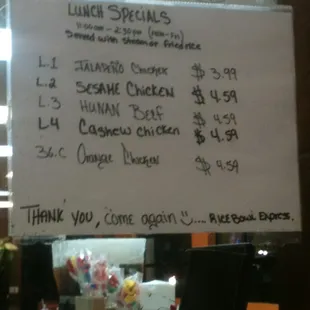 LUNCH SPECIALS
11:00am - 2:30pm (Mon-Fri)
Served with steam or fried rice
L.1 JALAPEÑO Chicken $3.99
L.2 SESAME CHICKEN $4.59
L.3 HUNAN BEEF $4.59
L4 Cashew chicken $4.59
36.C Orange Chicken $4.59
THANK YOU, come again .... RICE BOWL EXPRESS.